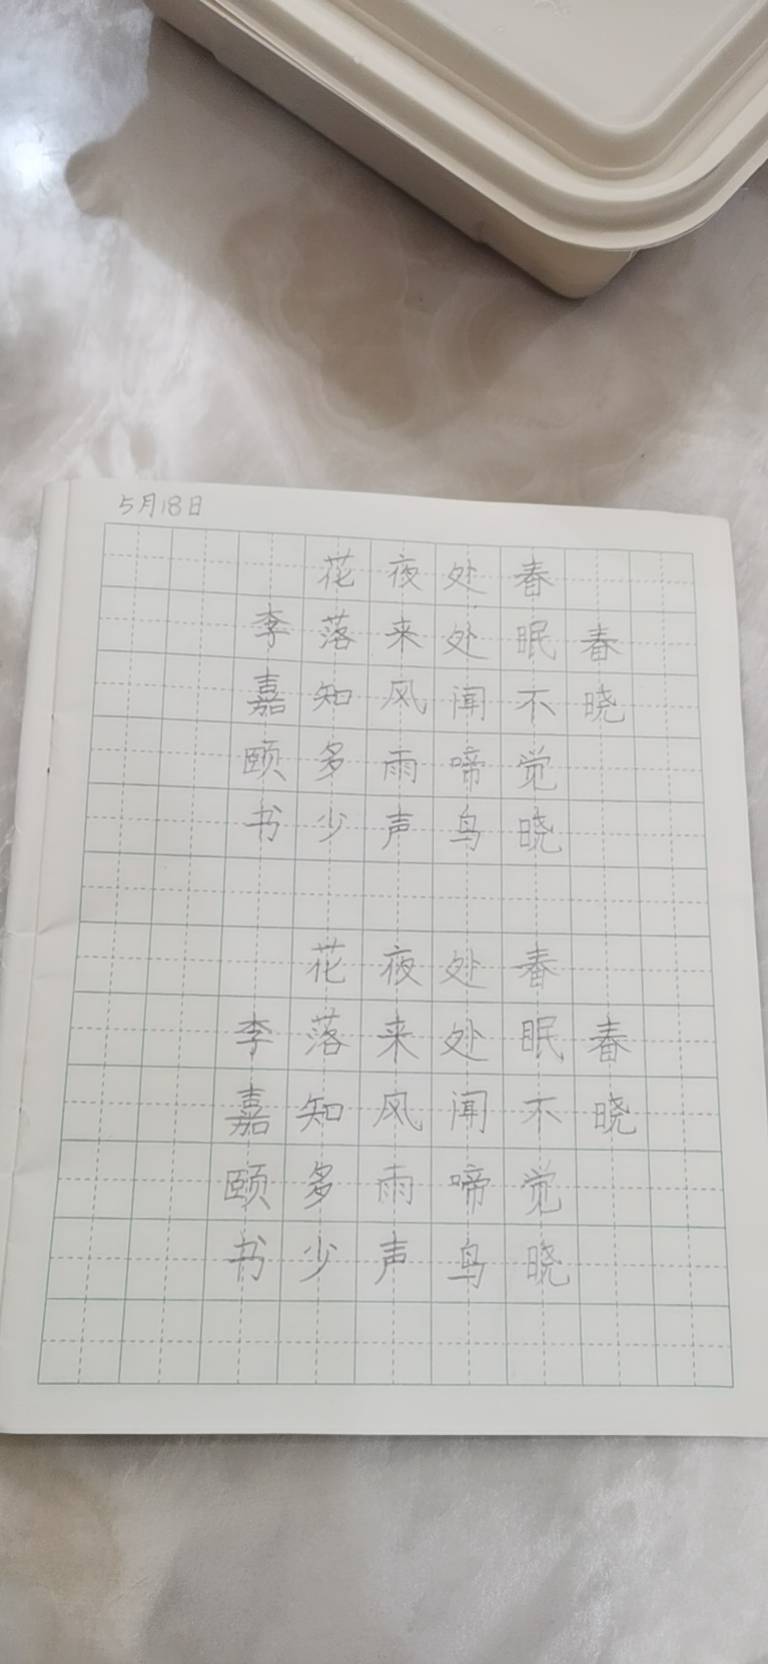 5月18日
春晓
春眠不觉晓
处处闻啼鸟
夜来风雨声
花落知多少
李嘉颐书
春晓
春眠不觉晓
处处闻啼鸟
夜来风雨声
花落知多少
李嘉颐书